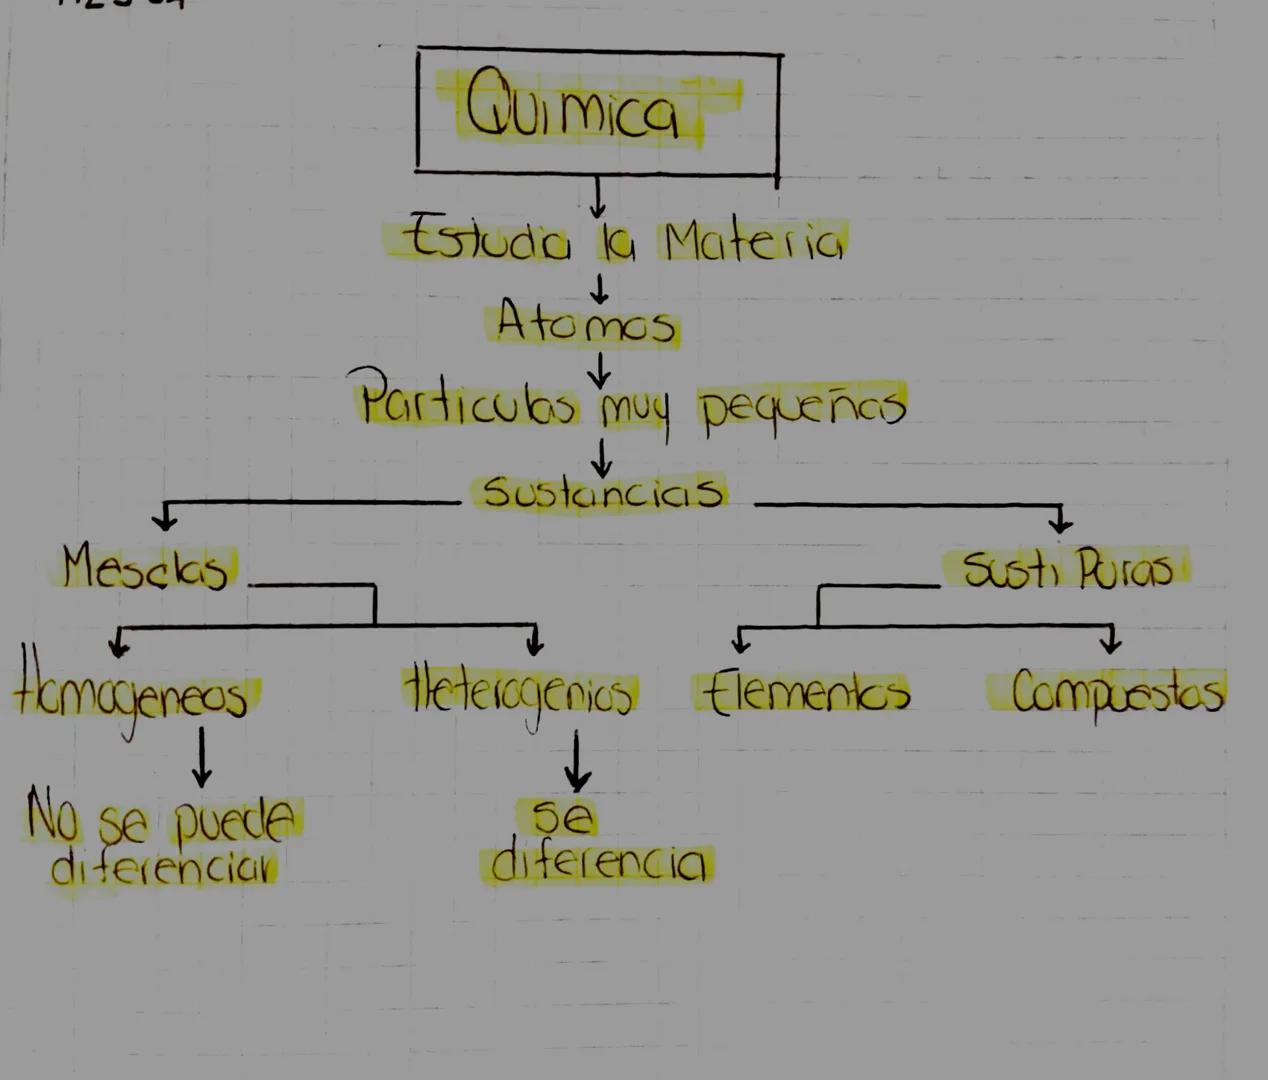 Quimica
Estudia la Materia
Atomos
Particulas muy pequeñas
Sustancias
Mesclas
Susti Puras
Homogeneos
Heterogenios
Elementos
Compuestos
No se puede
diferenciar
se
diferencia